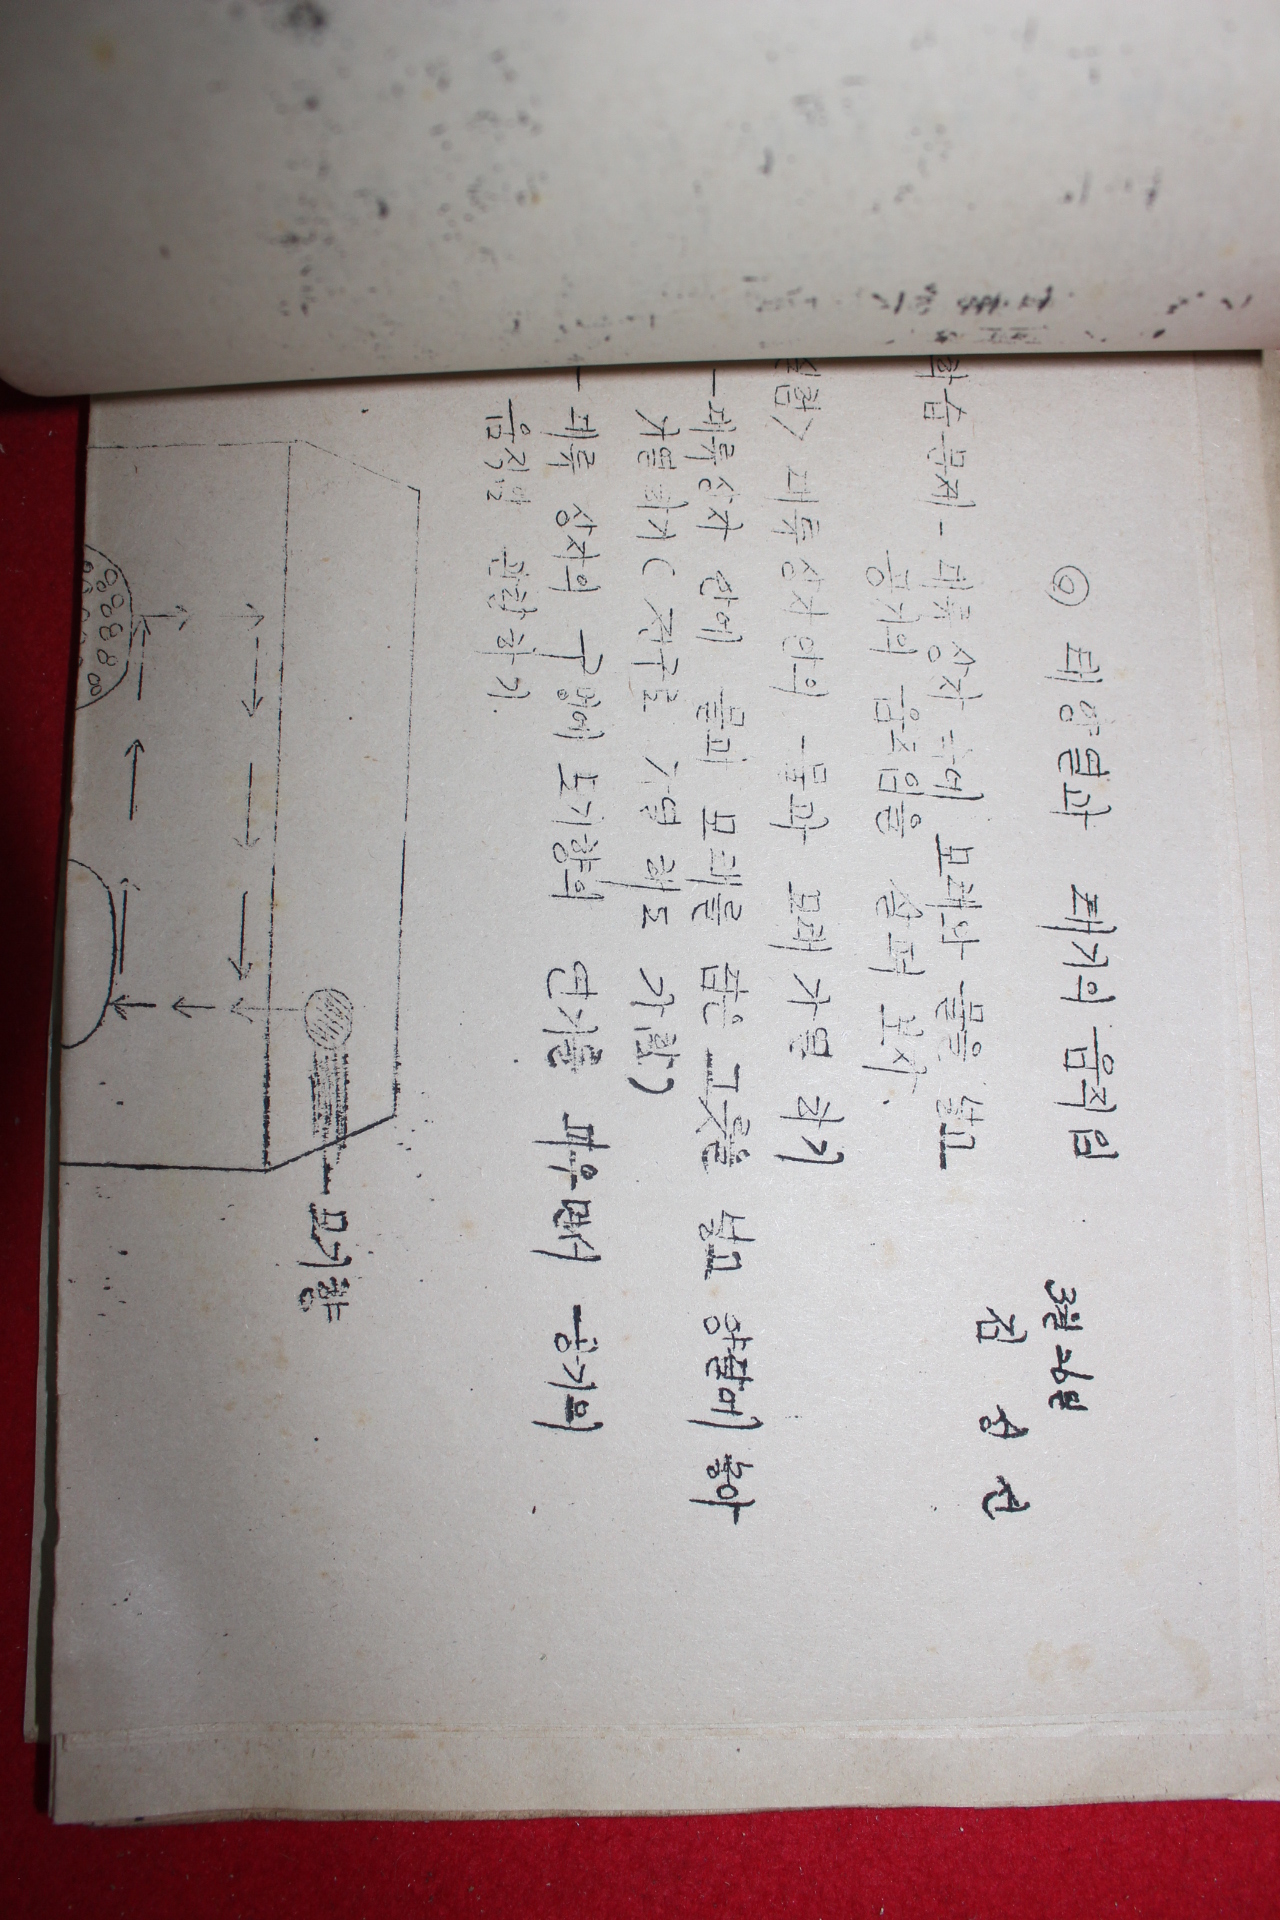 ② 태양열과 대기의 움직임
3월 26일
김 승 진
학습문제 - 대류상자 속에 모래와 물을 넣고
공기의 움직임을 살펴 보자.
실험> 대류상자안의 물과 모래 가열 하기
- 대류상자 안에 물과 모래를 담은 그릇을 넣고 양달에 놓아
가열하기 (전구로 가열 해도 가함)
- 대류 상자의 구멍에 모기향의 연기를 피우면서 공기의
움직임 관찰하기.
모기향